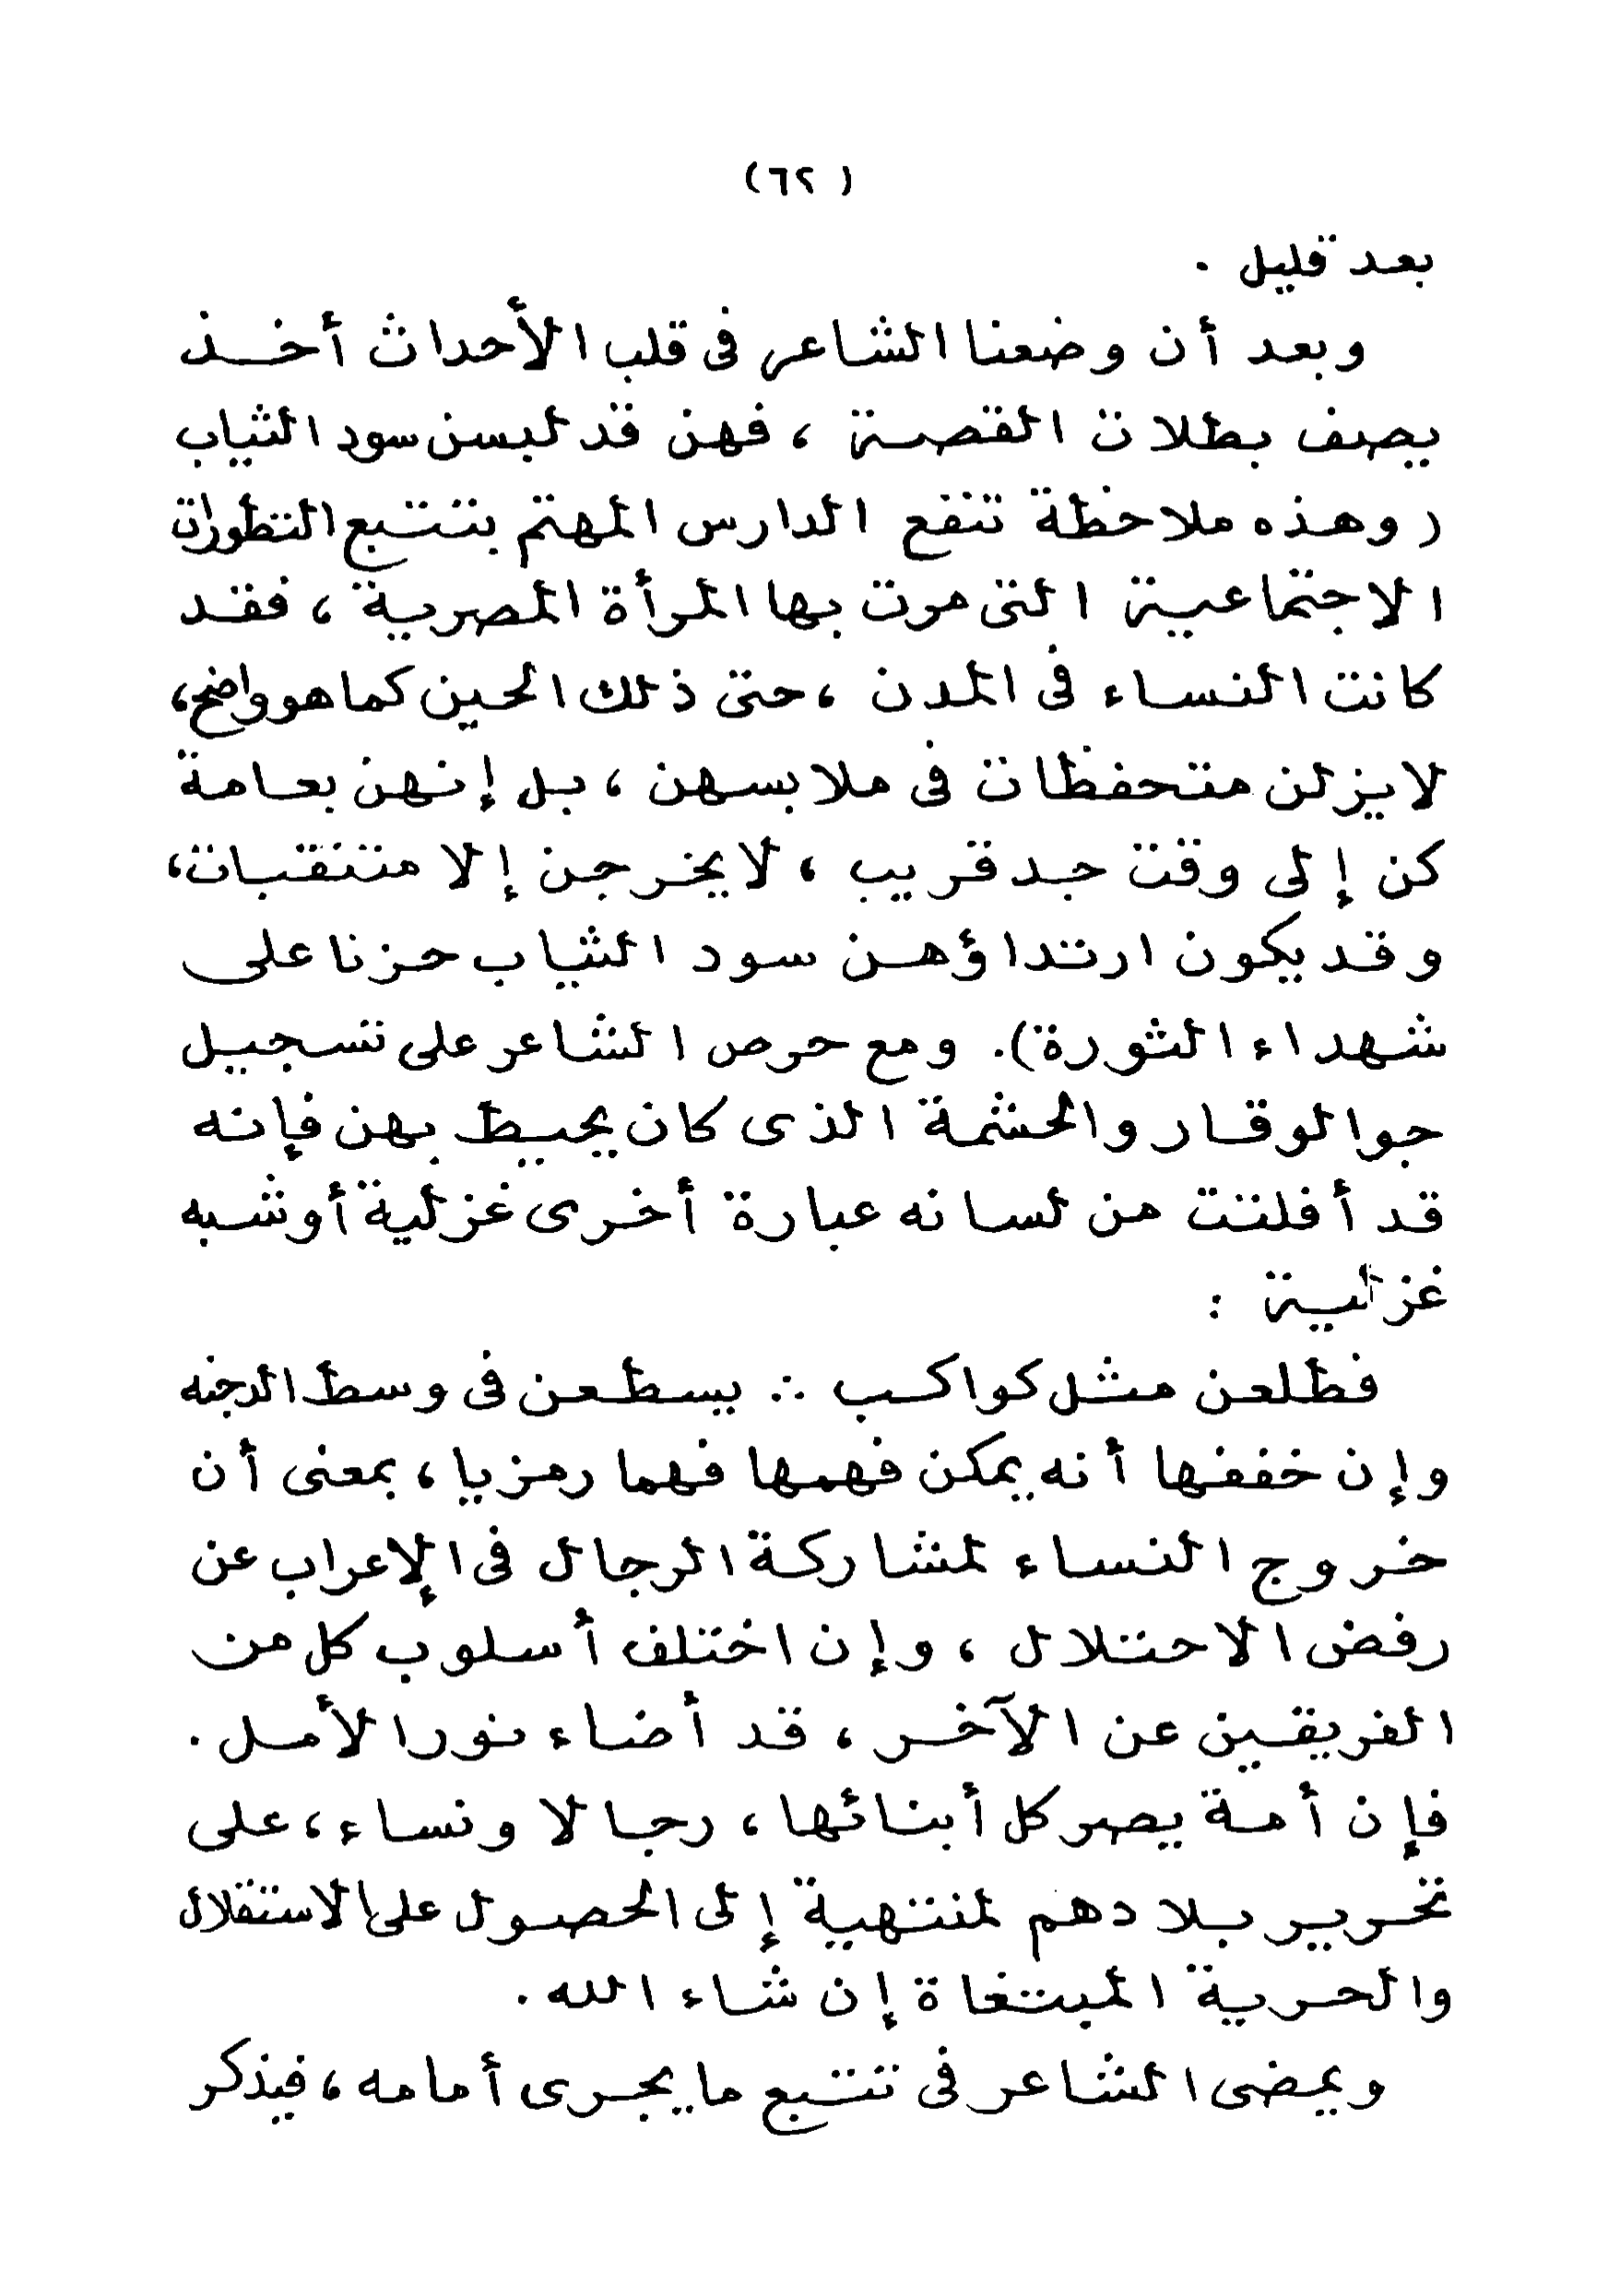 (٦٢)
بعد قليل .
وبعد أن وضعنا الشاعر فى قلب الأحداث أخذ
يصف بطلات القصة ، فهن قد لبسن سود الثياب
(وهذه ملاحظة تنفع الدارس المهتم بتتبع التطورات
الاجتماعية التى مرت بها المرأة المصرية ، فقد
كانت النساء فى المدن ، حتى ذلك الحين كما هو واضح،
لا يزلن متحفظات فى ملابسهن ، بل إنهن بعامة
كن إلى وقت جد قريب ، لا يخرجن إلا متنقبات،
وقد يكون ارتداؤهن سود الثياب حزنا على
شهداء الثورة). ومع حرص الشاعر على تسجيل
جو الوقار والحشمة الذى كان يحيط بهن فإنه
قد أفلتت من لسانه عبارة أخرى غزلية أو شبه
غزلية :
فطلعن مثل كواكب ∴ يسطعن فى وسط الدجنه
وإن خففها أنه يمكن فهمها فهما رمزيا ، بمعنى أن
خروج النساء لمشاركة الرجال فى الإعراب عن
رفض الاحتلال ، وإن اختلف أسلوب كل من
الفريقين عن الآخر ، قد أضاء نور الأمل .
فإن أمة يصر كل أبنائها ، رجالا ونساء ، على
تحرير بلادهم لمنتهية إلى الحصول على الاستقلال
والحرية المبتغاة إن شاء الله .
ويمضى الشاعر فى تتبع ما يجرى أمامه ، فيذكر